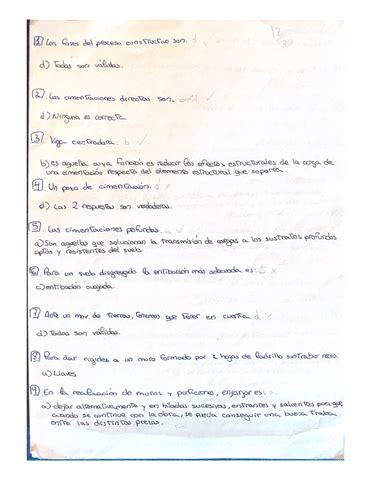 13
30
1 Las fases del proceso constructivo son. d
d) Todas son válidas.
2 Las cimentaciones directas son. ✓
d) Ninguna es correcta
3 Viga centradora: b ✓
b) es aquella cuya función es reducir los efectos estructurales de la carga de
una cimentación respecto del elemento estructural que soporta.
4 Un pozo de cimentación. d x
d) Las 2 respuestas son verdaderas.
5 Las cimentaciones profundas. a ✓
a) Son aquellas que solucionan la transmisión de cargas a los sustratos profundos
aptos y resistentes del suelo.
6 Para un suelo disgregado la entibación más adecuada es: x
c) entibación cuajada.
7 Ante un mov. de tierras, tenemos que tener en cuenta d x
d) Todas son válidas.
8 Para dar rigidez a un muro formado por 2 hojas de ladrillo sin trabar
a) Llaves
9 En la realización de muros y particiones, enjarjar es:
a) dejar alternativamente y en hiladas sucesivas, entrantes y salientes para que
cuando se continue con la obra, se pueda conseguir una buena traba
entre las distintas piezas.